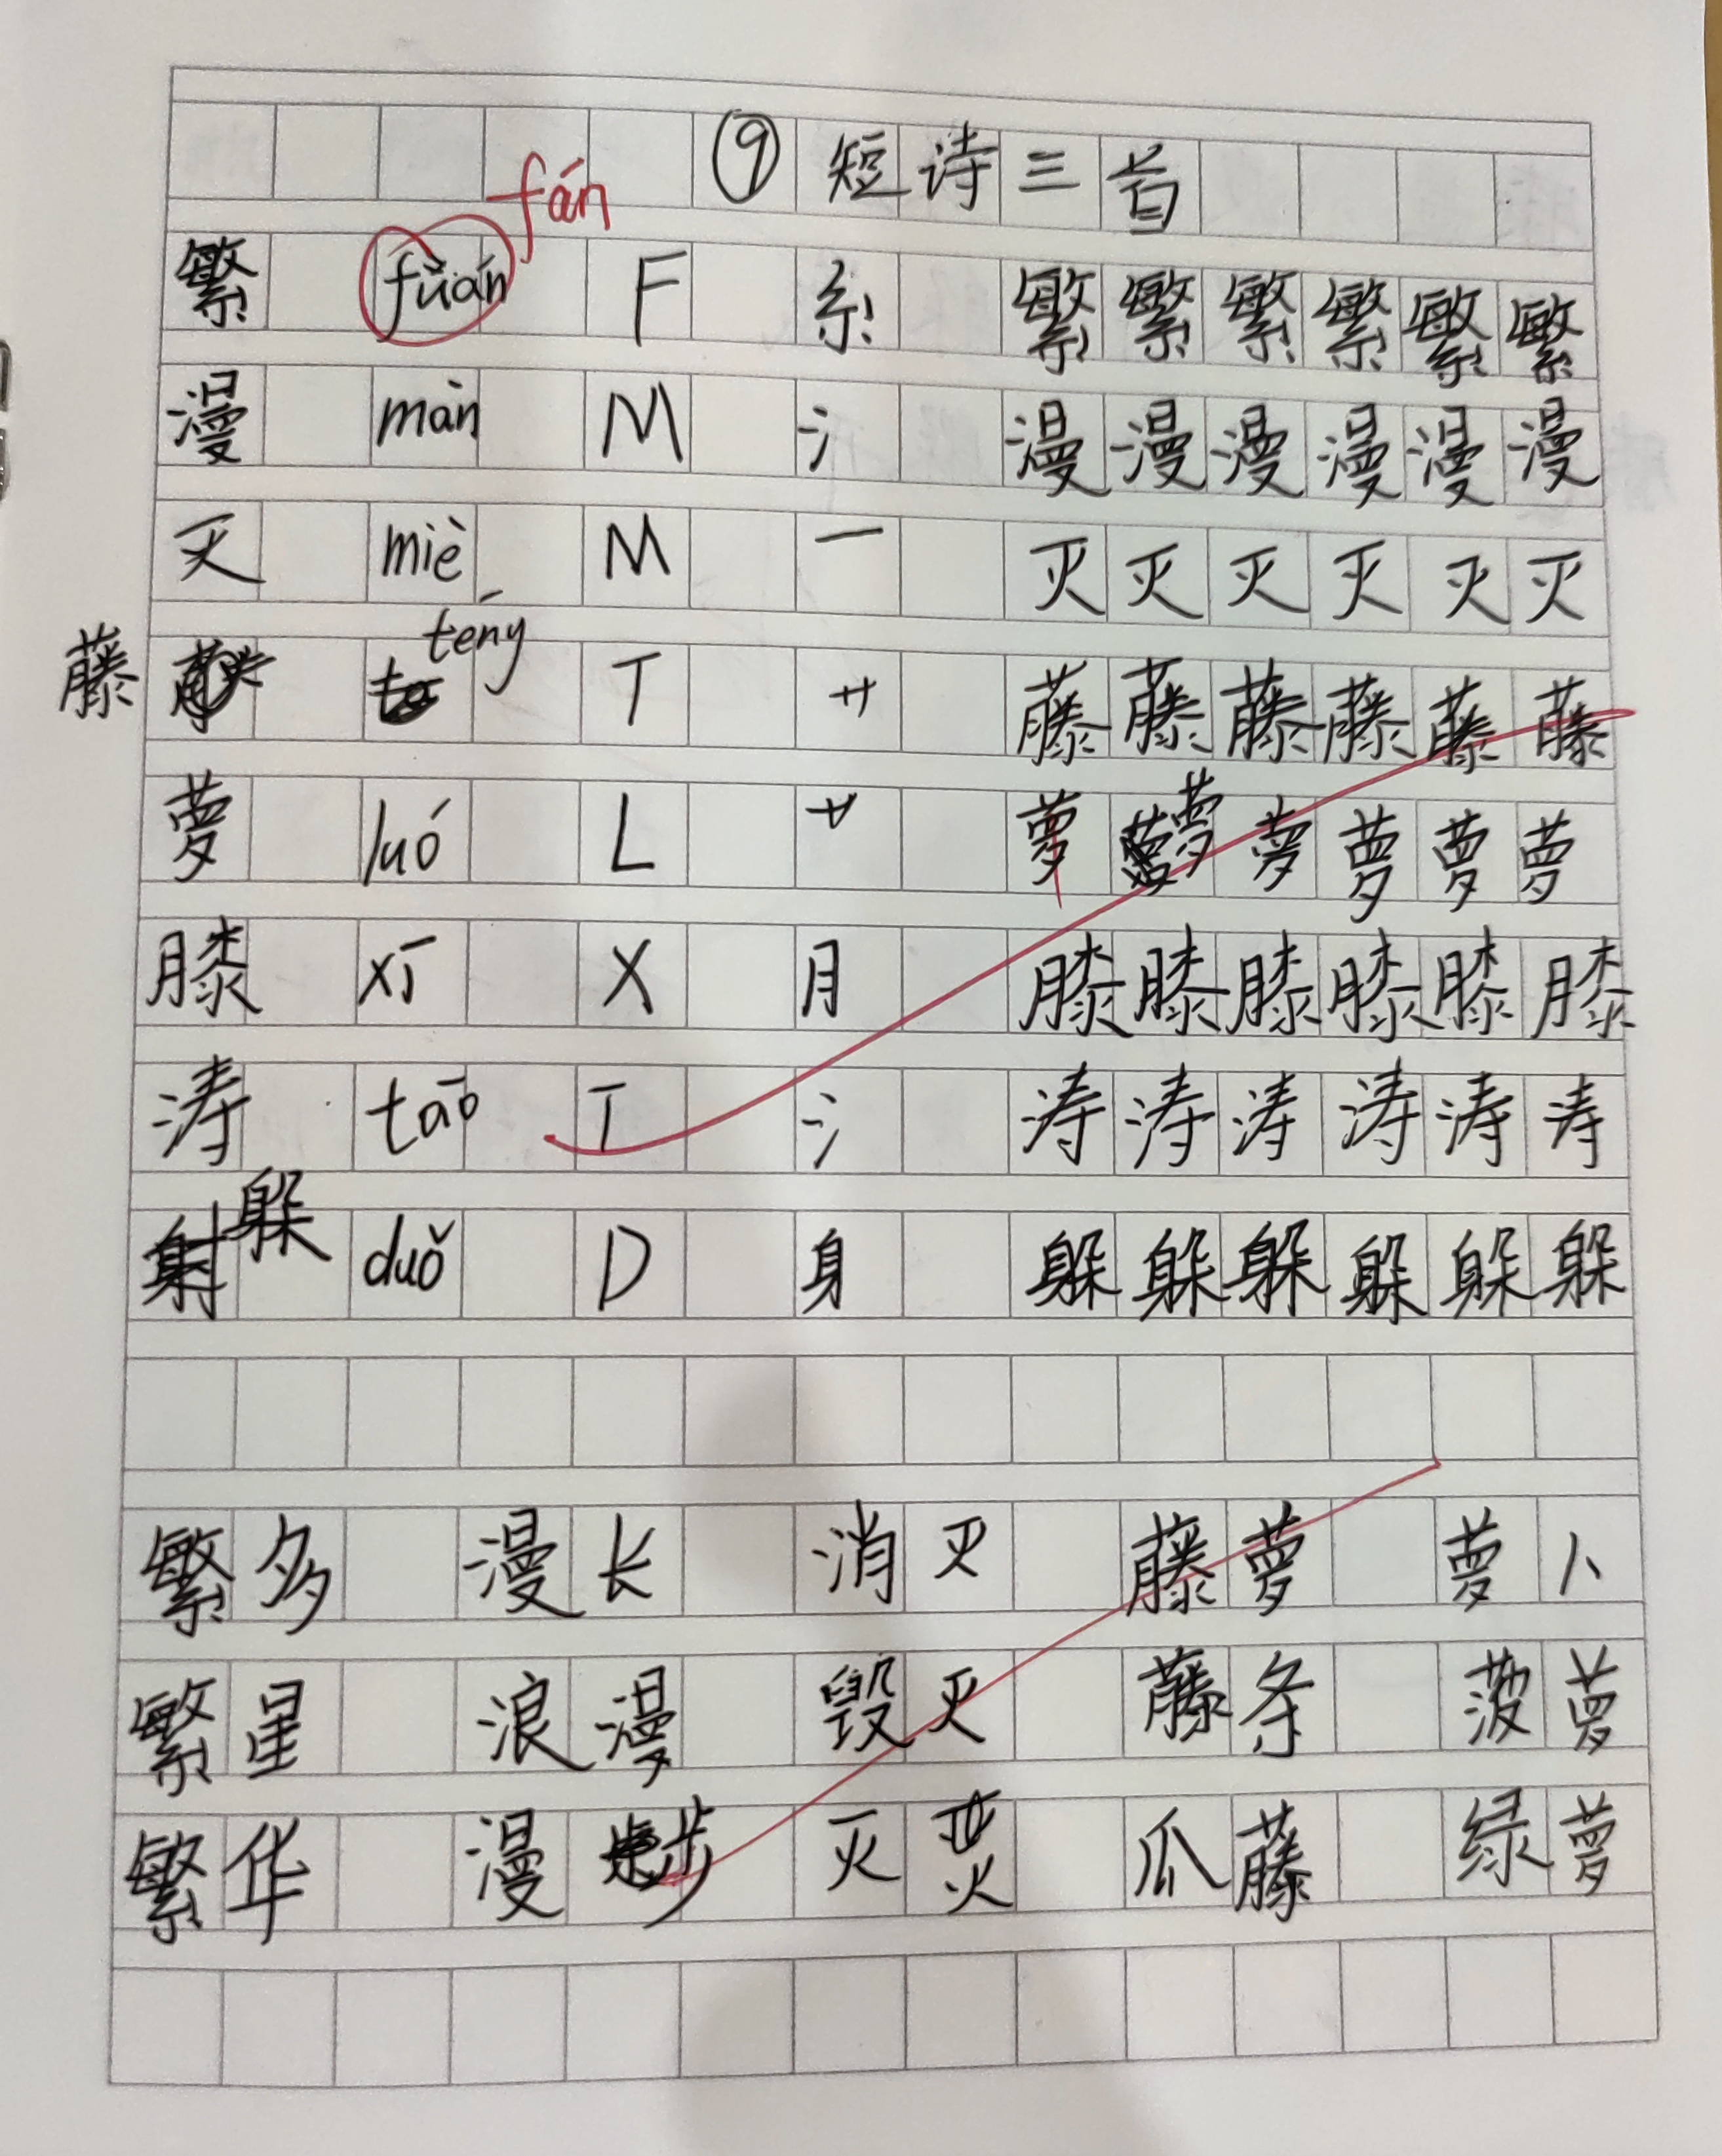 ⑨短诗三首
fán
繁 fǔán F 糹 繁繁繁繁繁繁
漫 màn M 氵 漫漫漫漫漫漫
灭 miè M 一 灭灭灭灭灭灭
藤 téng T 艹 藤藤藤藤藤藤
萝 luó L 艹 萝萝萝萝萝萝
膝 xī X 月 膝膝膝膝膝膝
涛 tāo T 氵 涛涛涛涛涛涛
躲 duǒ D 身 躲躲躲躲躲躲
繁多 漫长 消灭 藤萝 萝卜
繁星 浪漫 毁灭 藤条 菠萝
繁华 漫步 灭 瓜藤 绿萝